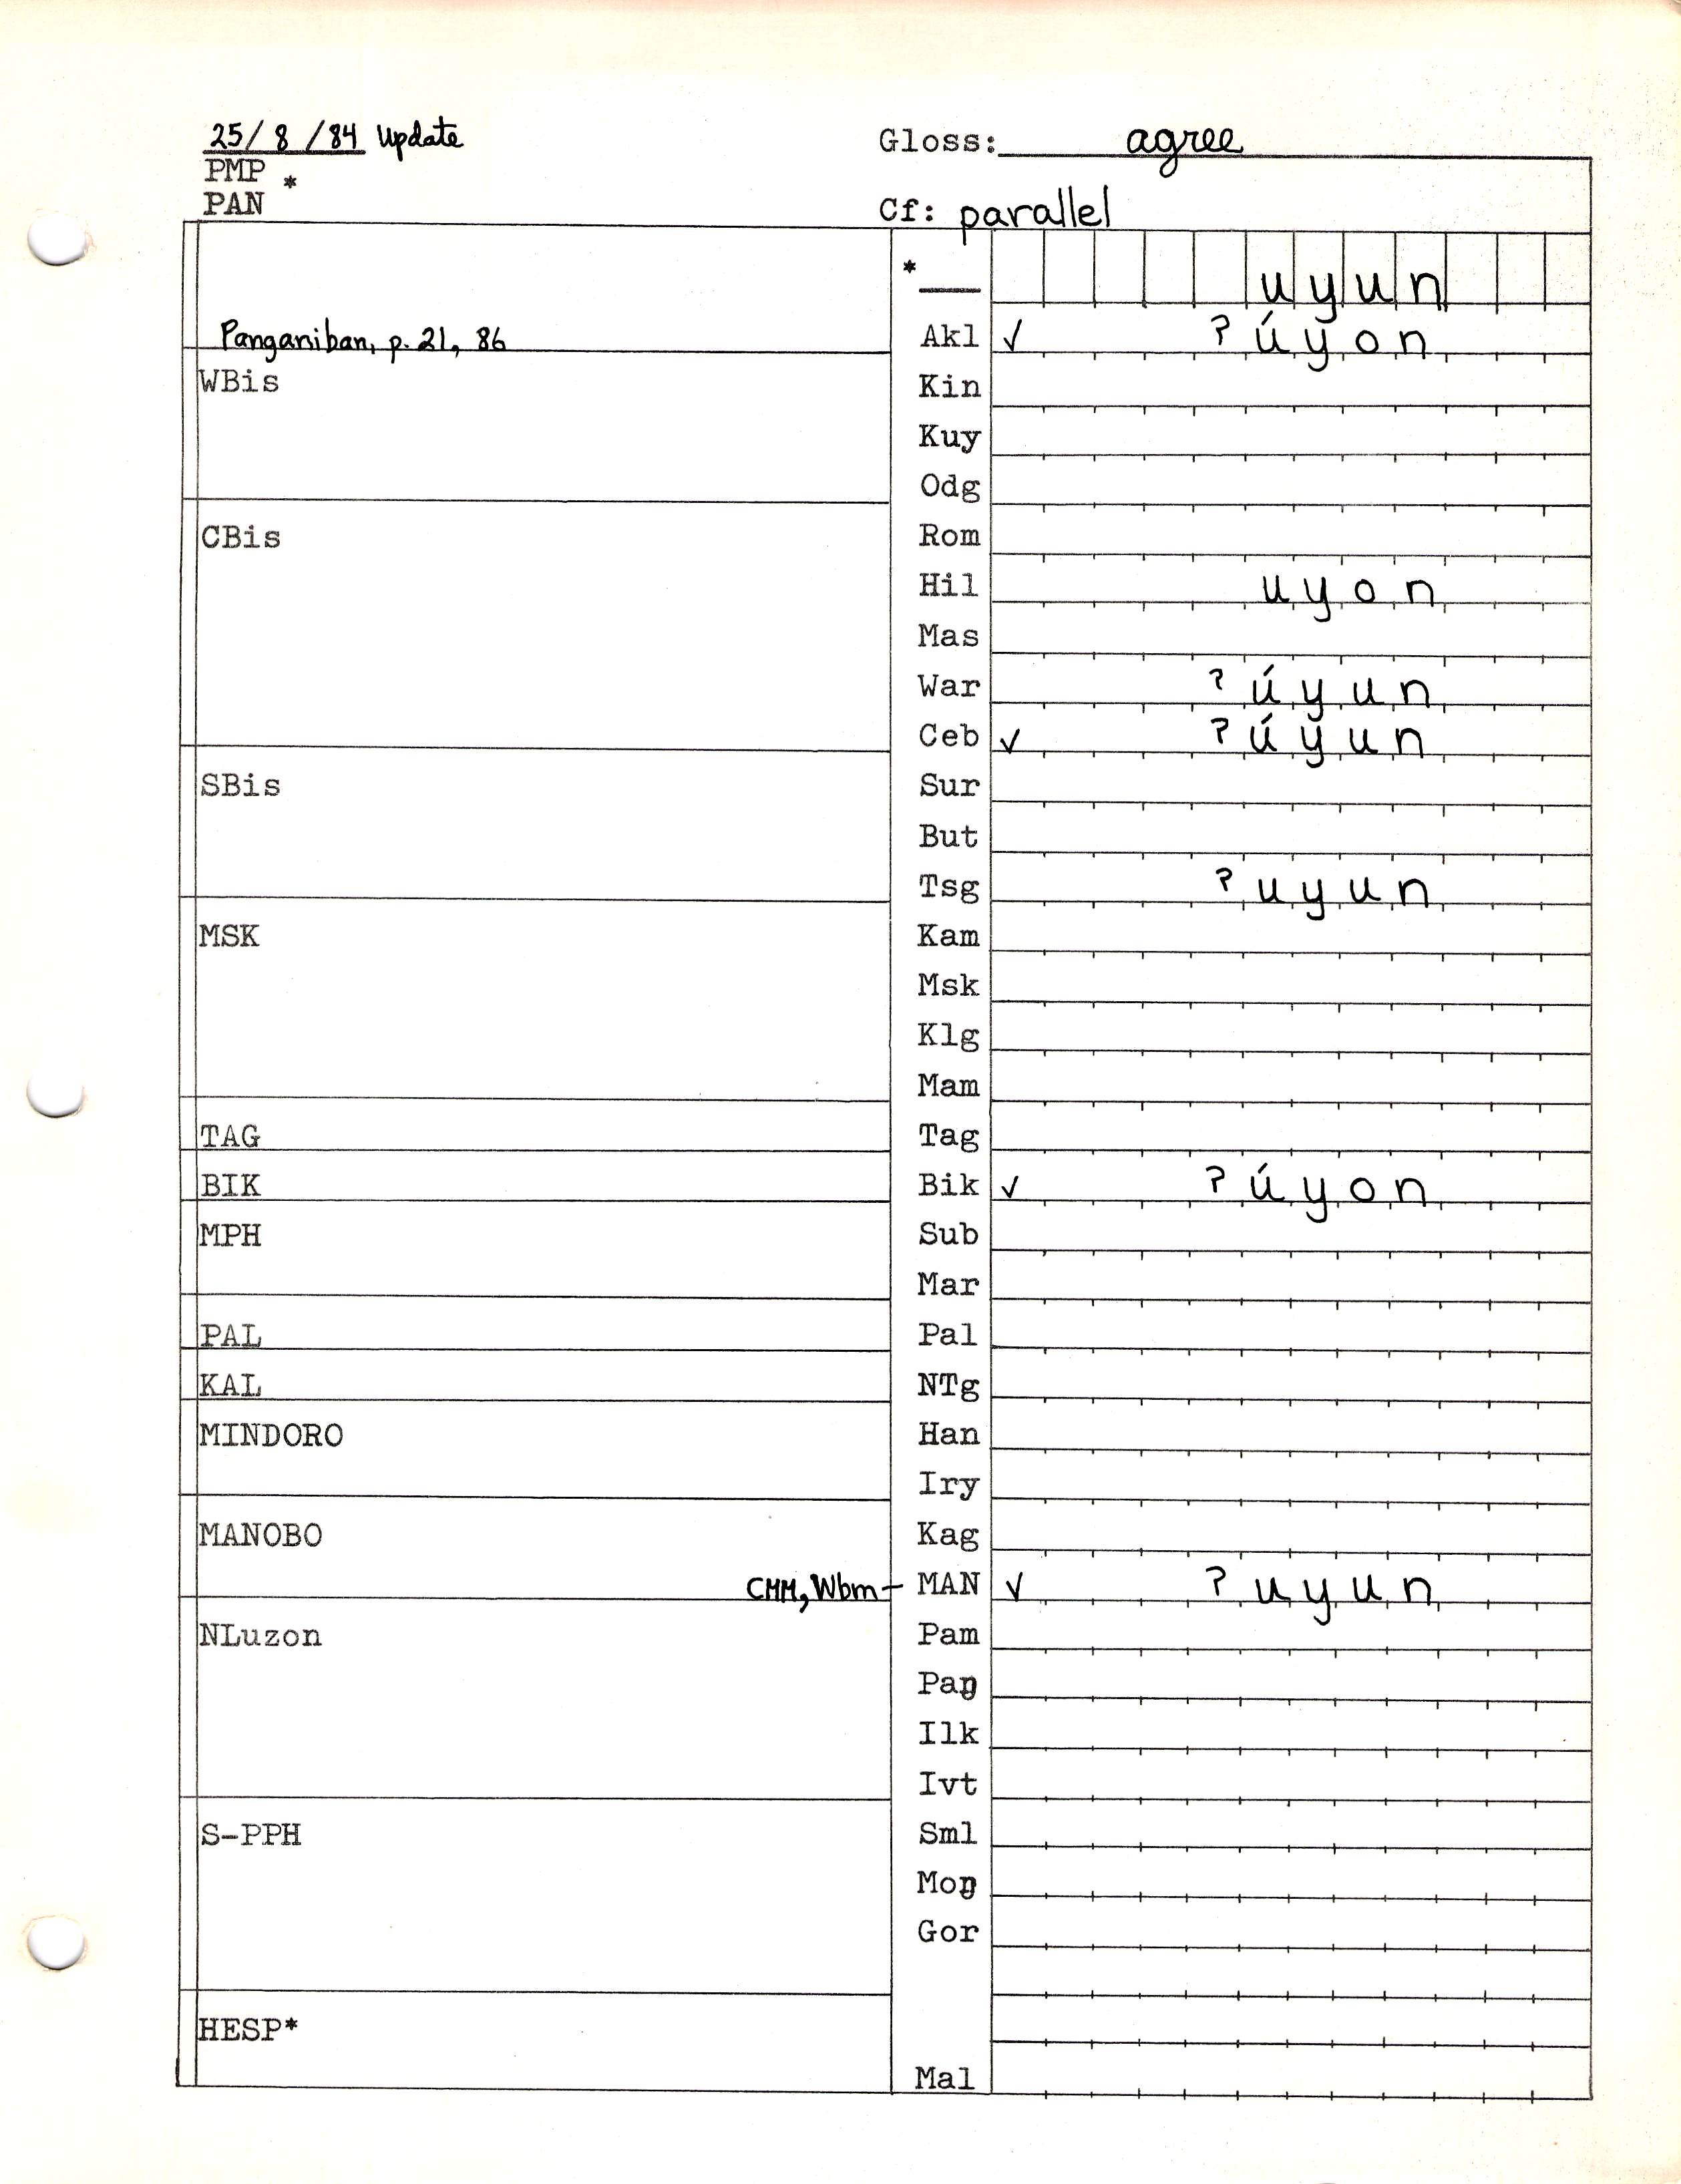 25/8/84 Update
Gloss: agree
PMP *
PAN
Cf: parallel
* uyun
Panganiban, p. 21, 86
Akl ✓ ʔúyon
WBis
Kin
Kuy
Odg
CBis
Rom
Hil uyon
Mas
War ʔúyun
Ceb ✓ ʔúyun
SBis
Sur
But
Tsg ʔuyun
MSK
Kam
Msk
Klg
Mam
TAG
Tag
BIK
Bik ✓ ʔúyon
MPH
Sub
Mar
PAL
Pal
KAL
NTg
MINDORO
Han
Iry
MANOBO
Kag
CMM, Wbm – MAN ✓ ʔuyun
NLuzon
Pam
Paŋ
Ilk
Ivt
S-PPH
Sml
Moŋ
Gor
HESP*
Mal